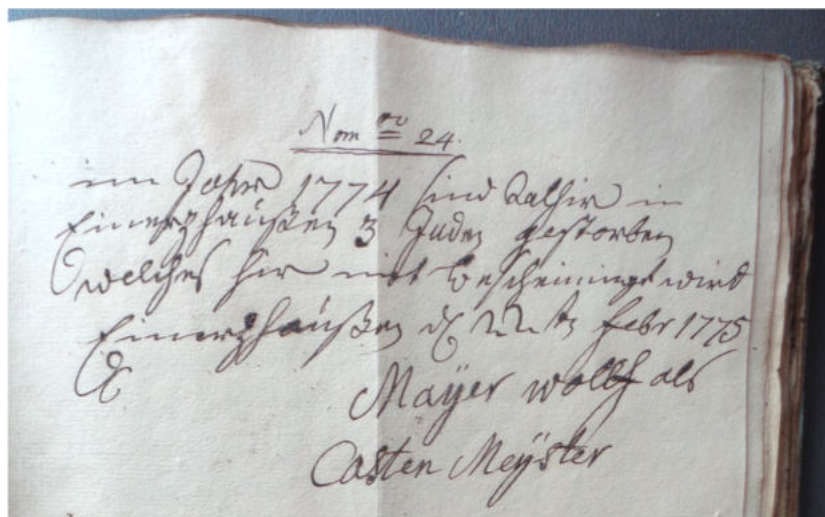 Nom ro 24.
im Jahr 1774 sind dalhir in
Einertzhaußen 3 Juden gestorben
welches hir mit bescheiningt wird
Einertzhaußen d 22ten Febr 1775
Mayer wollf als
Casten Meÿster